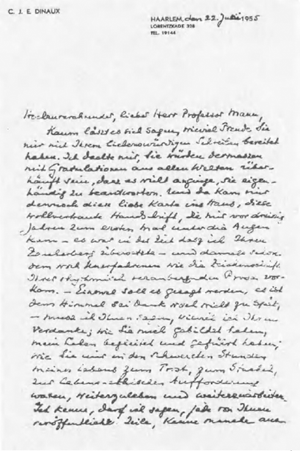 C. J. E. DINAUX
HAARLEM, den 22. Julie 1955
LORENTZKADE 208
TEL. 18144
Hochzuverehrender, lieber Herr Professor Mann,
Kaum lässt es sich sagen, wieviel Freude Sie
mir mit Ihrem liebenswürdigen Schreiben bereitet
haben. Ich dachte mir, Sie würden dermassen
mit Gratulationen aus allen Welten über-
häuft sein, dass es nicht anginge, sie eigen-
händig zu beantworten. Und da kam mir
dennoch diese liebe Karte ins Haus, diese
wohlvertraute Handschrift, die mir vor dreissig
Jahren zum ersten Mal unter die Augen
kam – es war in der Zeit dass ich Ihren
Zauberberg – und damals schon
dem wie die
Prosa vor-
kam. – Einmal soll es gesagt werden, es ist
dem Himmel sei Dank noch nicht zu spät,
– muss ich Ihnen sagen, wieviel ich Ihnen
Verdanke; wie Sie mich gebildet haben,
mein Leben begleitet und geführt haben;
wie Sie mir in den schwersten Stunden
meines Lebens zum Trost, zum
zur Aufforderung
waren, weiterzuleben und weiterzuarbeiten.
Ich kenne, darf ich sagen, jede von Ihnen
veröffentlichte Zeile, kenne manche aus-